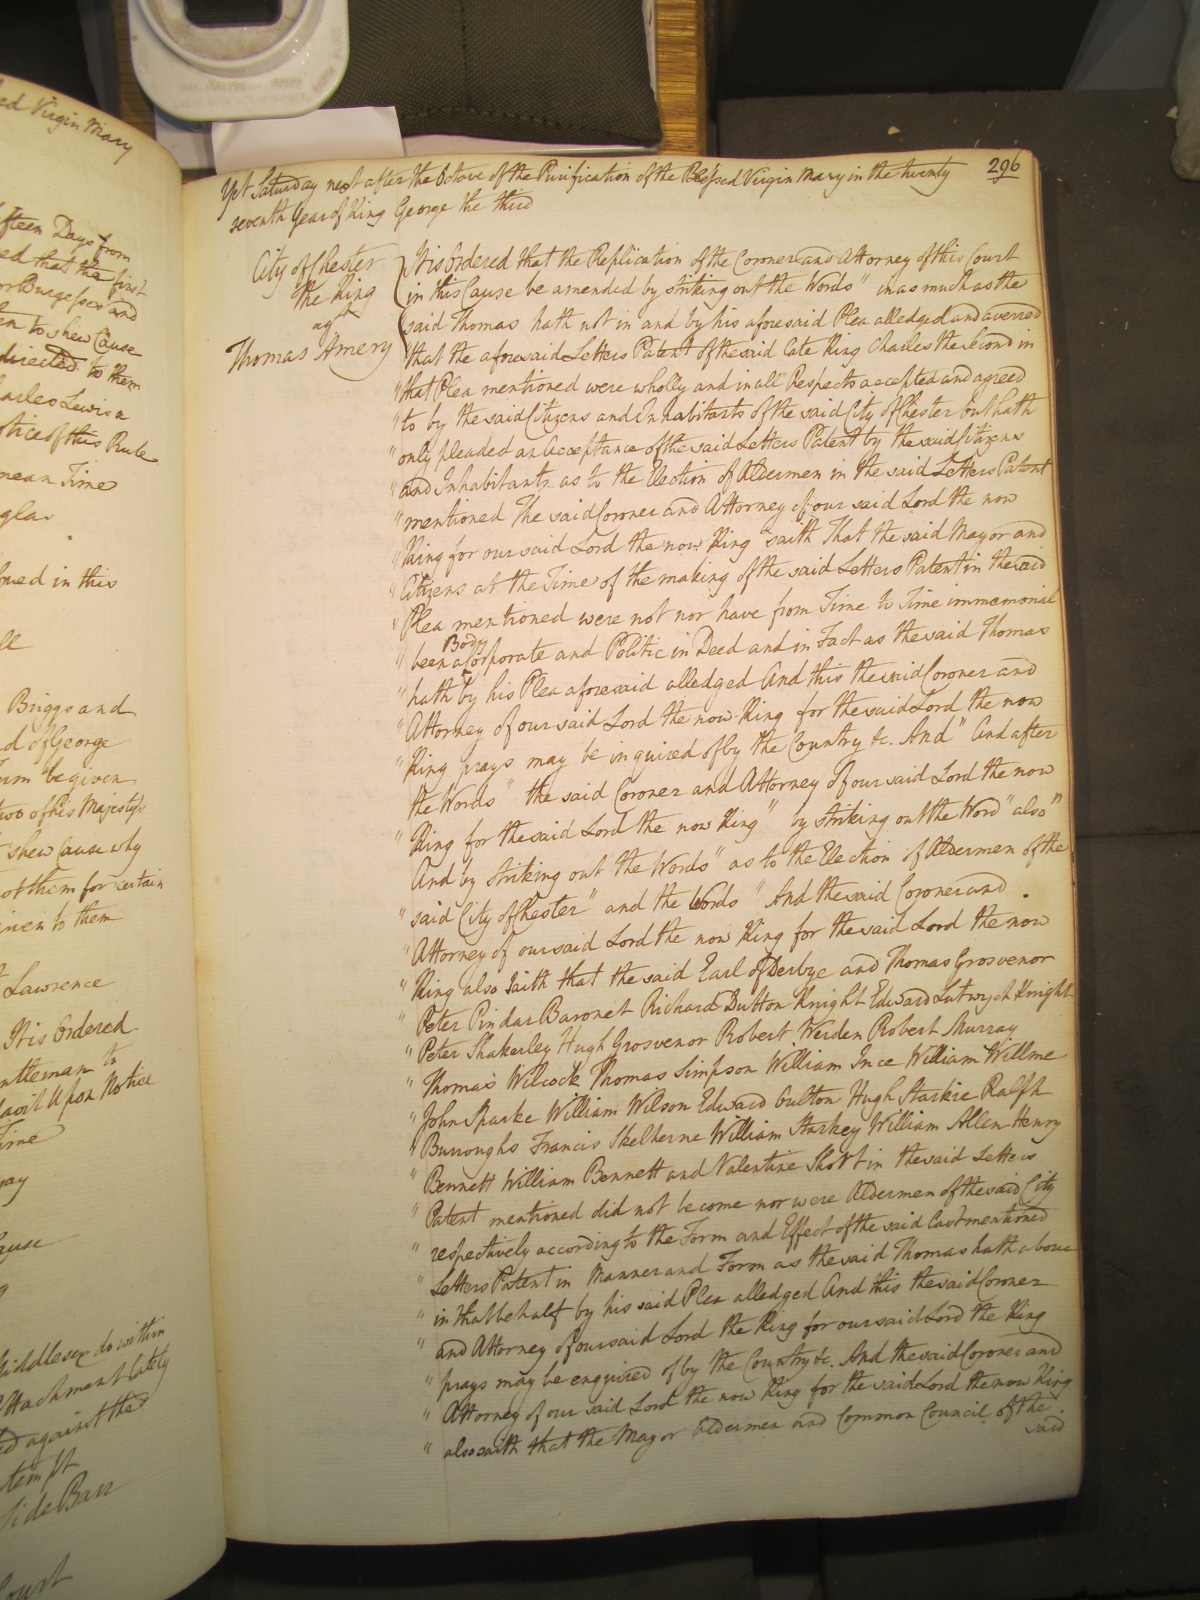 ed Virgin Mary
fteen Days from
ed that the first
or Burgesses and
en to shew Cause
directed to them
harles Lewis a
otice of this Rule
mean Time
glas
sued in this
ll
Briggs and
d of George
be given
two of his Majestys
shew Cause why
ot them for certain
iven to them
Lawrence
It is Ordered
ntleman to
davit Upon Notice
Time
ray
Cause
Middlesex do within
Attachment lately
ed against the
tempt
Side Barr
Court
296
Yet Saturday next after the Octave of the Purification of the Blessed Virgin Mary in the twenty
seventh Year of King George the third
City of Chester
The King
agt
Thomas Amery
It is Ordered that the Replication of the Coroner and Attorney of this Court
in this Cause be amended by striking out the Words " in as much as the
said Thomas hath not in and by his aforesaid Plea alledged and averred
that the aforesaid Letters Patent of the said late King Charles the second in
" that Plea mentioned were wholly and in all Respects accepted and agreed
" to by the said Citizens and Inhabitants of the said City of Chester but hath
" only pleaded an Acceptance of the said Letters Patent by the said Citizens
" and Inhabitants as to the Election of Aldermen in the said Letters Patent
" mentioned The said Coroner and Attorney of our said Lord the now
" King for our said Lord the now King saith That the said Mayor and
" Citizens at the Time of the making of the said Letters Patent in the said
" Plea mentioned were not nor have from Time to Time immemorial
" been a Body Corporate and Politic in Deed and in Fact as the said Thomas
" hath by his Plea aforesaid alledged And this the said Coroner and
" Attorney of our said Lord the now King for the said Lord the now
" King prays may be inquired of by the Country &c. And " And after
the Words " the said Coroner and Attorney of our said Lord the now
" King for the said Lord the now King " by striking out the Word " also "
And by striking out the Words " as to the Election of Aldermen of the
" said City of Chester " and the Words " And the said Coroner and
" Attorney of our said Lord the now King for the said Lord the now
" King also saith that the said Earl of Derbye and Thomas Grosvenor
" Peter Pindar Baronet Richard Dutton Knight Edward Lutwych Knight
" Peter Shakerley Hugh Grosvenor Robert Werden Robert Murray
" Thomas Wilcock Thomas Simpson William Ince William Willme
" John Sparke William Wilson Edward Oulton Hugh Starkie Ralph
" Burroughs Francis Skelherne William Starkey William Allen Henry
" Bennett William Bennett and Valentine Short in the said Letters
" Patent mentioned did not become nor were Aldermen of the said City
" respectively according to the Form and Effect of the said last mentioned
" Letters Patent in Manner and Form as the said Thomas hath above
" in that behalf by his said Plea alledged And this the said Coroner
" and Attorney of our said Lord the King for our said Lord the King
" prays may be enquired of by the Country &c. And the said Coroner and
" Attorney of our said Lord the now King for the said Lord the now King
" also saith that the Mayor Aldermen and Common Council of the
said